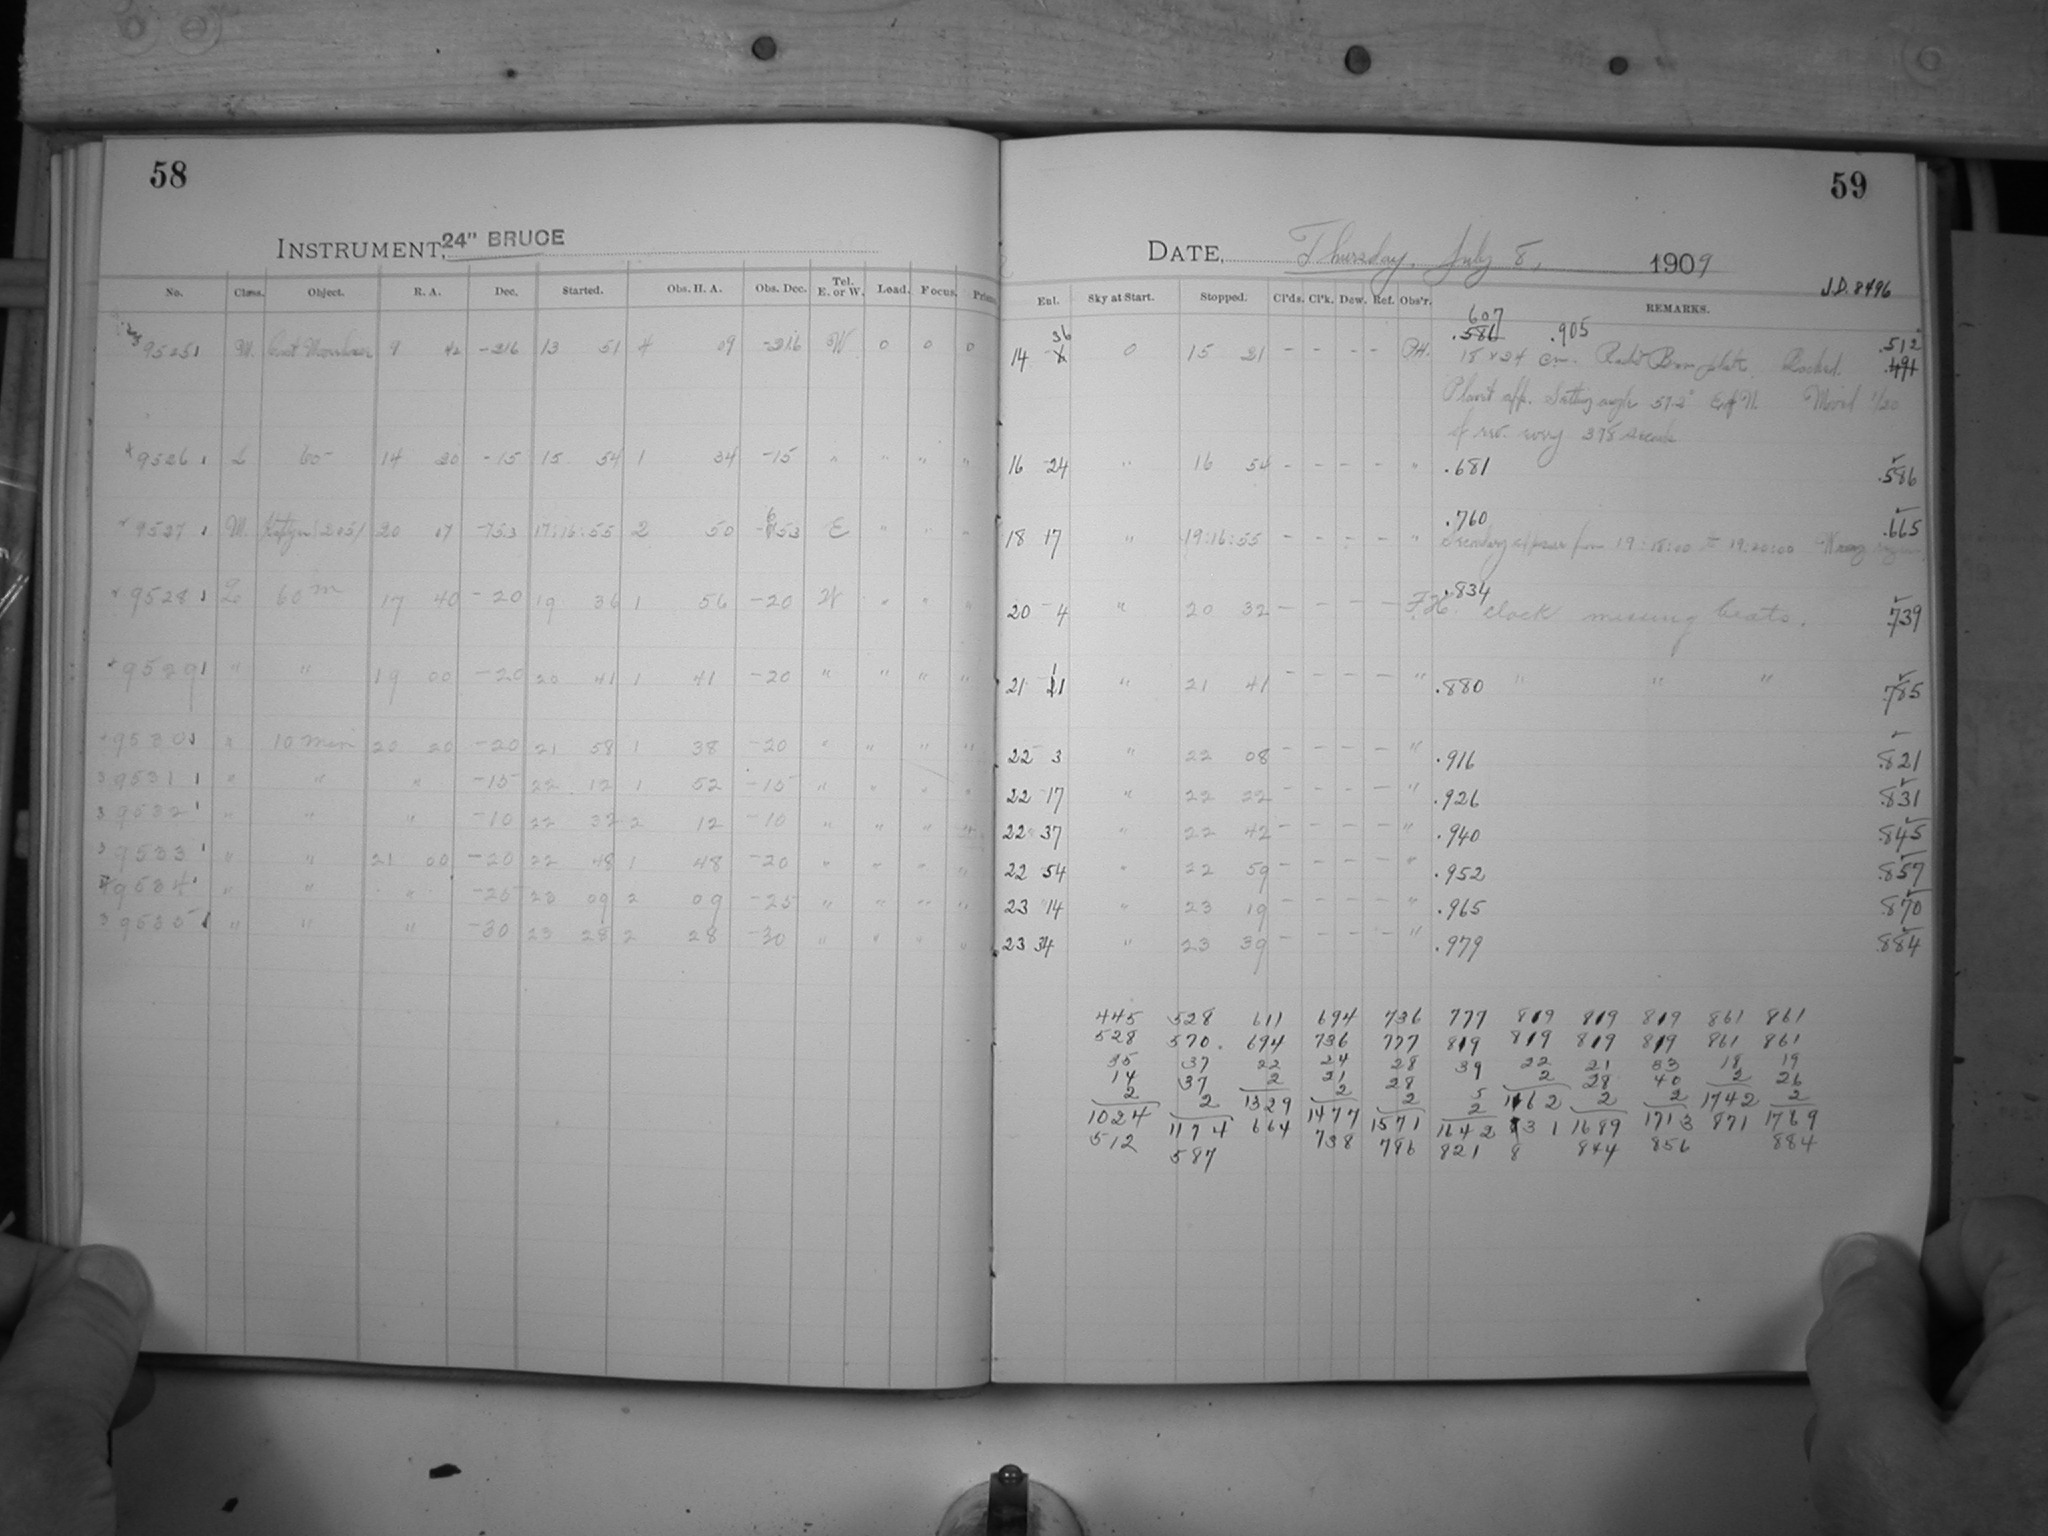 58
INSTRUMENT, 24" BRUCE
No. Class. Object. R. A. Dec. Started. Obs. H. A. Obs. Dec. Tel. E. or W. Load. Focus. Prism
9525 M. 9 42 -216 13 51 4 09 -216 W 0 0 0
9526 L 60 14 20 -15 15 54 1 34 -15 " " " "
9527 M. 20 17 -753 17:16:55 2 50 E " " "
9528 L 60 m 17 40 -20 19 36 1 56 -20 W " " "
9529 " " 19 00 -20 20 41 1 41 -20 " " " "
9530 " 10 min 20 20 -20 21 58 1 38 -20 " " " "
9531 " " " -15 22 12 1 52 -15 " " " "
9532 " " " -10 22 32 2 12 -10 " " " "
9533 " " 21 00 -20 22 48 1 48 -20 " " " "
9534 " " " -25 23 09 2 09 -25 " " " "
9535 " " " -30 23 28 2 28 -30 " " " "
59
DATE, Thursday, July 8, 1909
J.D. 8496
Ent. Sky at Start. Stopped. Cl'ds. Cl'k. Dew. Ref. Obs'r. REMARKS.
607
14 36 0 15 21 - - - - .586 .905 .512
18 x 24 cm. plate .491
Planet app. Setting angle 57.2° E of N. Moved 1/20
of rev. every 378 seconds
16 24 " 16 54 - - - - " .681 .586
.760 .665
18 17 " 19:16:55 - - - - " from 19:18:00 to 19:20:00
.834
20 4 " 20 32 - - - - F.H. clock missing beats. .739
21 11 " 21 41 - - - - " .880 " " " .785
22 3 " 22 08 - - - - " .916 .821
22 17 " 22 22 - - - - " .926 .831
22 37 " 22 42 - - - - " .940 .845
22 54 " 22 59 - - - - " .952 .857
23 14 " 23 19 - - - - " .965 .870
23 34 " 23 39 - - - - " .979 .884
445 528 611 694 736 777 819 819 819 861 861
528 570 694 736 777 819 819 819 819 861 861
35 37 22 24 28 39 22 21 33 18 19
14 37 2 21 28 5 2 28 40 2 26
2 2 1329 2 2 2 1662 2 2 1742 2
1024 1174 664 1477 1571 1642 831 1689 1713 871 1769
512 587 738 786 821 8 844 856 884